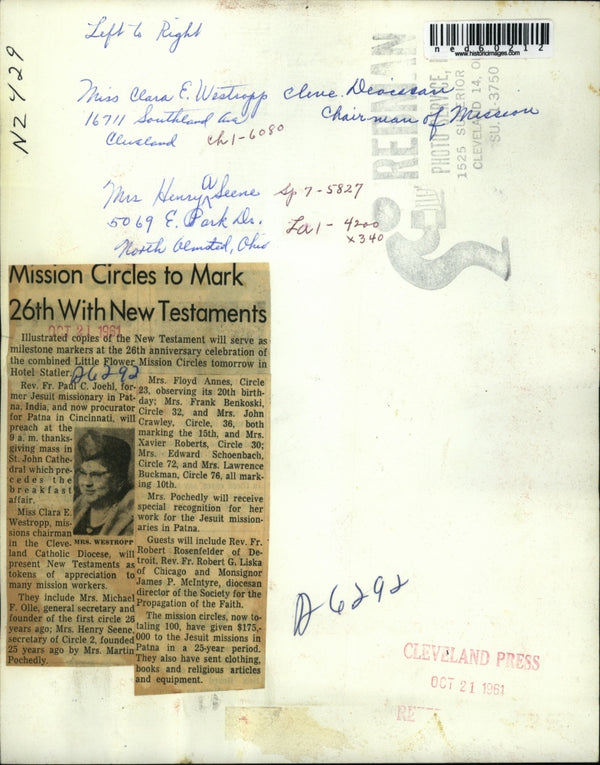 Left to Right
ned60212
www.historicimages.com
N2429
Miss Clara E. Westropp Cleve. Diocesan
16711 Southland Ave Chairman of Mission
Cleveland Ch1-6080
Mrs Henry A Seene Sp 7-5827
5069 E. Park Dr. La1-4200
North Olmsted, Ohio x340
REHMAN
PHOTO SERVICE,
1525 SUPERIOR
CLEVELAND 14, O
SU. 1-3750
Mission Circles to Mark
26th With New Testaments
OCT 21 1961
Illustrated copies of the New Testament will serve as
milestone markers at the 26th anniversary celebration of
the combined Little Flower Mission Circles tomorrow in
Hotel Statler.
D6292
Rev. Fr. Paul C. Joehl, for-
mer Jesuit missionary in Pat-
na, India, and now procurator
for Patna in Cincinnati, will
preach at the
9 a. m. thanks-
giving mass in
St. John Cathe-
dral which pre-
cedes the
breakfast
affair.
Miss Clara E.
Westropp, mis-
sions chairman
in the Cleve-
land Catholic Diocese, will
present New Testaments as
tokens of appreciation to
many mission workers.
They include Mrs. Michael
F. Olle, general secretary and
founder of the first circle 26
years ago; Mrs. Henry Seene,
secretary of Circle 2, founded
25 years ago by Mrs. Martin
Pochedly.
MRS. WESTROPP
Mrs. Floyd Annes, Circle
23, observing its 20th birth-
day; Mrs. Frank Benkoski,
Circle 32, and Mrs. John
Crawley, Circle, 36, both
marking the 15th, and Mrs.
Xavier Roberts, Circle 30;
Mrs. Edward Schoenbach,
Circle 72, and Mrs. Lawrence
Buckman, Circle 76, all mark-
ing 10th.
Mrs. Pochedly will receive
special recognition for her
work for the Jesuit mission-
aries in Patna.
Guests will include Rev. Fr.
Robert Rosenfelder of De-
troit, Rev. Fr. Robert G. Liska
of Chicago and Monsignor
James P. McIntyre, diocesan
director of the Society for the
Propagation of the Faith.
The mission circles, now to-
taling 100, have given $175,-
000 to the Jesuit missions in
Patna in a 25-year period.
They also have sent clothing,
books and religious articles
and equipment.
D6292
CLEVELAND PRESS
OCT 21 1961